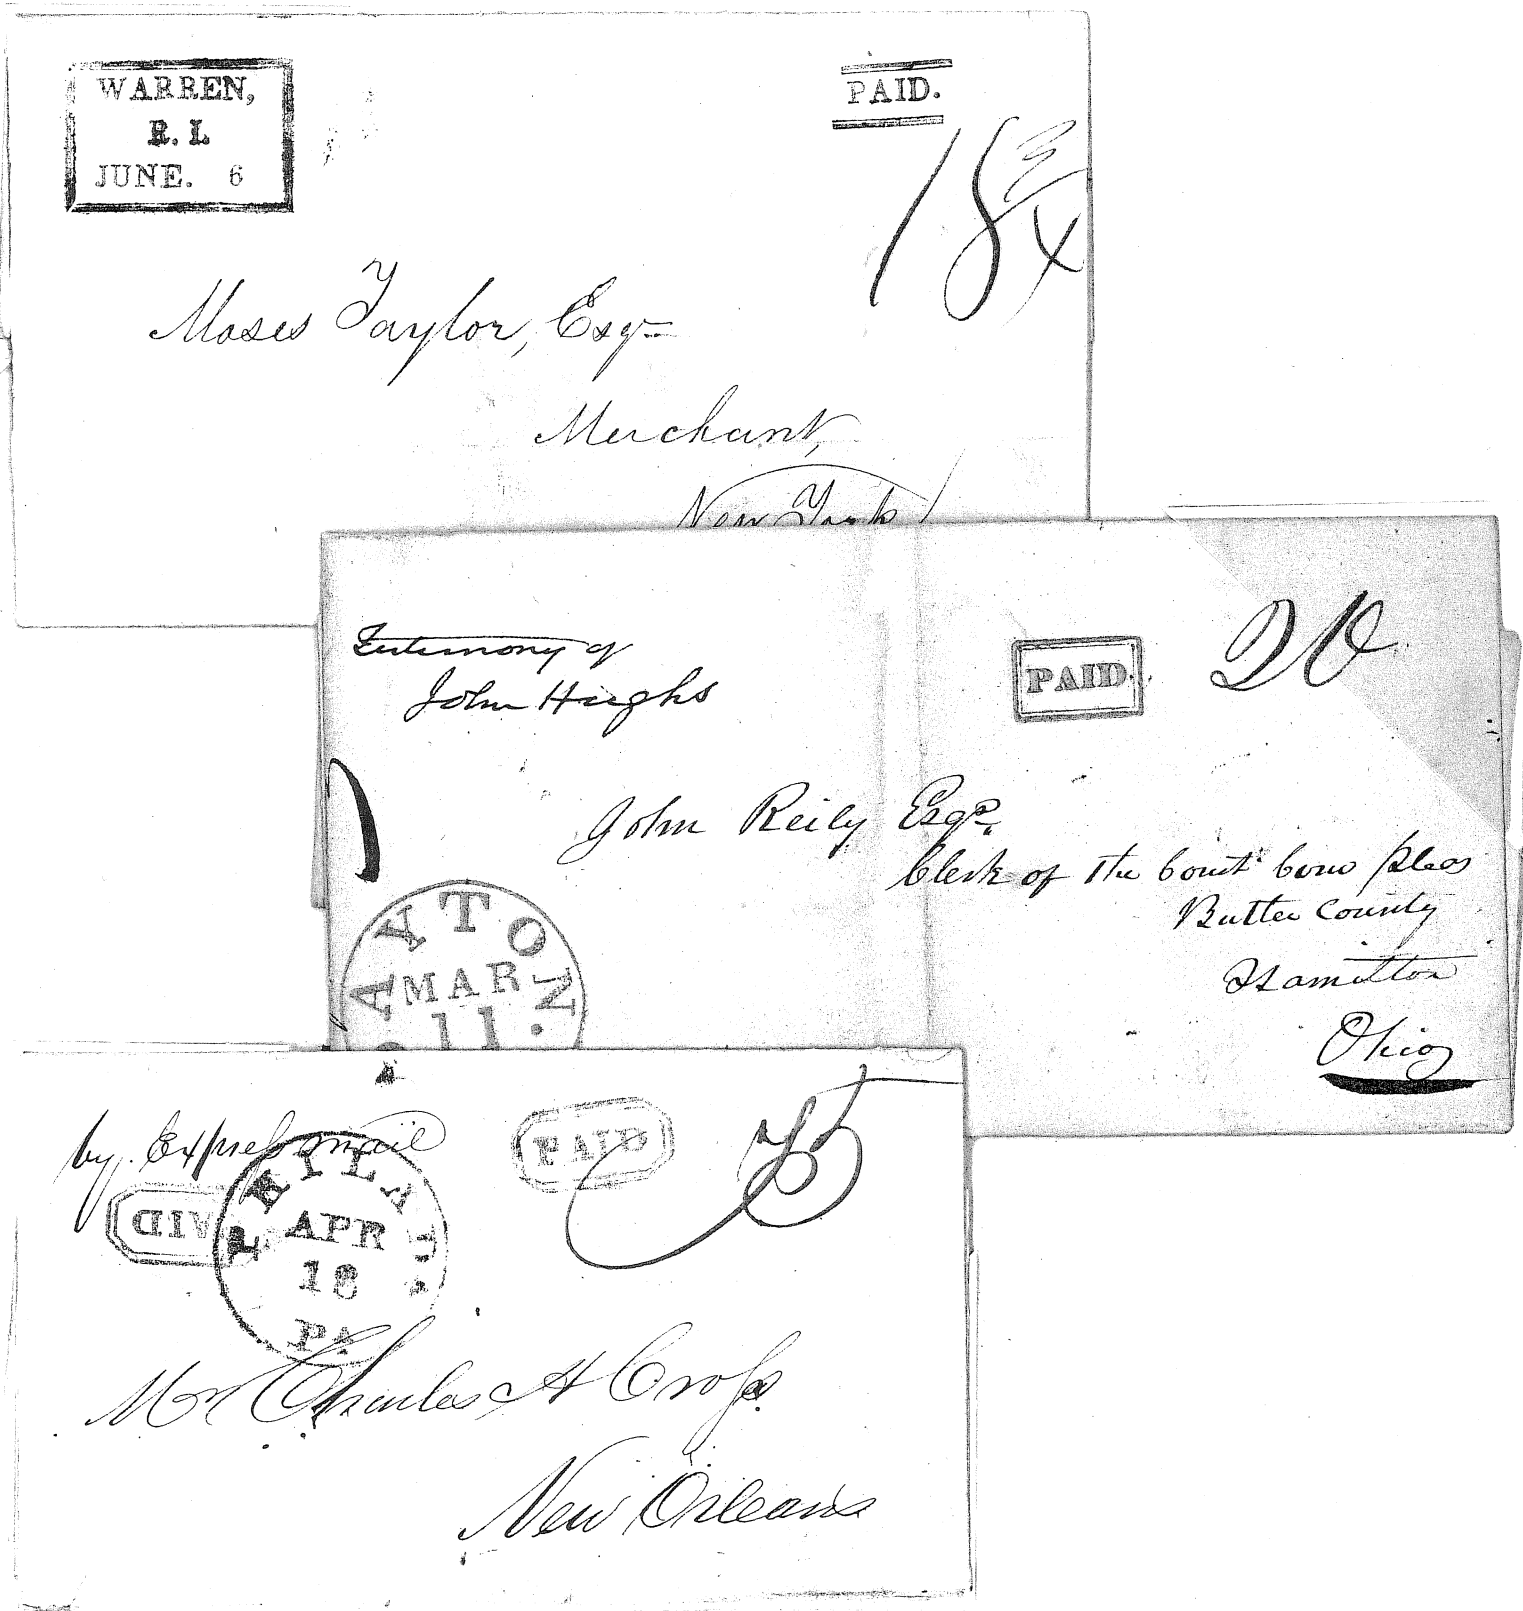 WARREN,
R. I.
JUNE. 6
PAID.
18 3/4
Moses Taylor, Esqr
Merchant,
New York
Testimony of
John Hughs
PAID.
20
John Reily Esqr.
Clerk of the Court Com Pleas
Butler County
Hamilton
Ohio
AYTON.
MAR
11
by Express mail
PAID
PAID
PHILADA
APR
18
PA.
Mr Charles H Cross
New Orleans